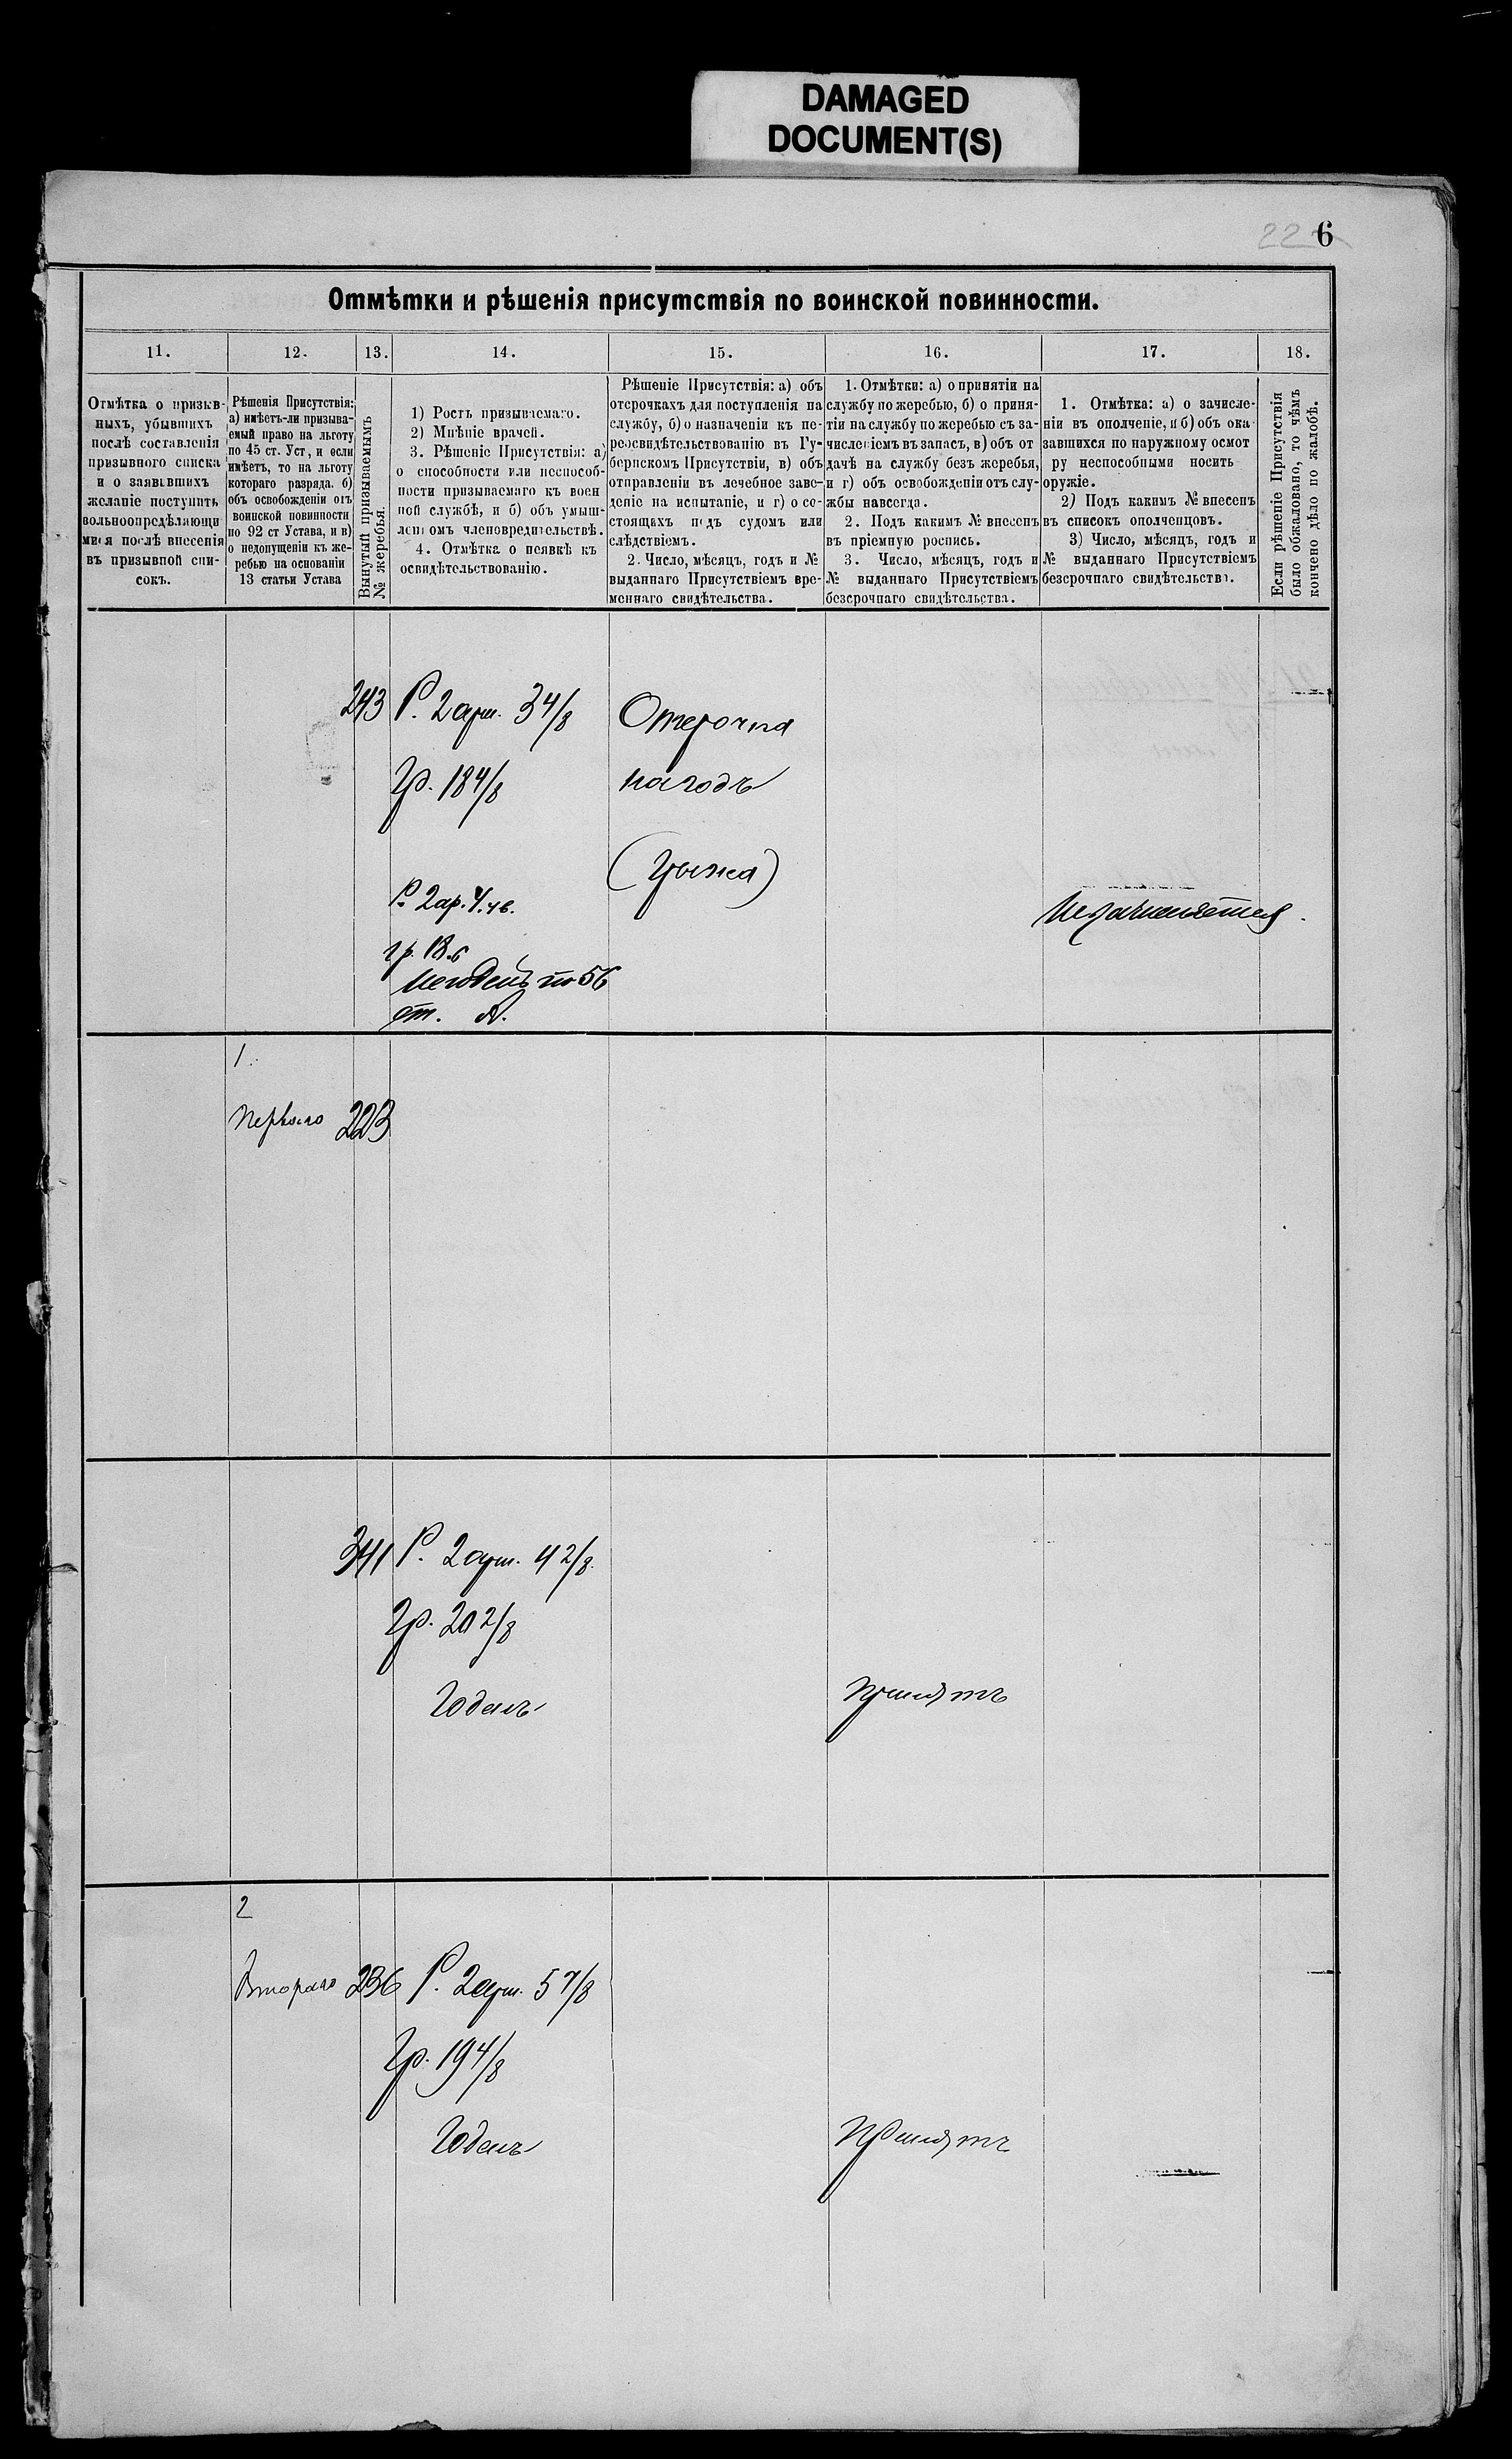 DAMAGED
DOCUMENT(S)
22 6
Отмѣтки и рѣшенія присутствія по воинской повинности.
11.
12.
13.
14.
15.
16.
17.
18.
Отмѣтка о призыв-
ныхъ, убывшихъ
послѣ составленія
призывного списка
и о заявившихъ
желаніе поступить
вольноопредѣляющи
мися послѣ внесенія
въ призывной спи-
сокъ.
Рѣшенія Присутствія:
а) имѣетъ-ли призыва-
емый право на льготу
по 45 ст. Уст, и если
имѣетъ, то на льготу
котораго разряда. б)
объ освобожденіи отъ
воинской повинности
по 92 ст Устава, и в)
о недопущеніи къ же-
ребью на основаніи
13 статьи Устава
Вынутый призываемымъ
№ жеребья.
1) Ростъ призываемаго.
2) Мнѣніе врачей.
3. Рѣшеніе Присутствія: а)
о способности или неспособ-
ности призываемаго къ воен
ной службѣ, и б) объ умыш-
леномъ членовредительствѣ.
4. Отмѣтка о неявкѣ къ
освидѣтельствованію.
Рѣшеніе Присутствія: а) объ
отсрочкахъ для поступленія на
службу, б) о назначеніи къ пе-
реосвидѣтельствованію въ Гу-
бернскомъ Присутствіи, в) объ
отправленіи въ лечебное заве-
деніе на испытаніе, и г) о со-
стоящихъ подъ судомъ или
слѣдствіемъ.
2. Число, мѣсяцъ, годъ и №
выданнаго Присутствіемъ вре-
меннаго свидѣтельства.
1. Отмѣтки: а) о принятіи на
службу по жеребью, б) о приня-
тіи на службу по жеребью съ за-
численіемъ въ запасъ, в) объ от
дачѣ на службу безъ жеребья,
и г) объ освобожденіи отъ слу-
жбы навсегда.
2. Подъ какимъ № внесенъ
въ пріемную роспись.
3. Число, мѣсяцъ, годъ и
№ выданнаго Присутствіемъ
безсрочнаго свидѣтельства.
1. Отмѣтка: а) о зачисле-
ніи въ ополченіе, и б) объ ока
завшихся по наружному осмот
ру неспособными носить
оружіе.
2) Подъ какимъ № внесенъ
въ списокъ ополченцовъ.
3) Число, мѣсяцъ, годъ и
№ выданнаго Присутствіемъ
безсрочнаго свидѣтельства.
Если рѣшеніе Присутствія
было обжаловано, то чѣмъ
кончено дѣло по жалобѣ.
243 Р. 2 арш. 3 4/8 Отсрочка
Гр. 18 4/8 на годъ
(Грыжа)
Р. 2 ар. 4. чв. Незачисляется.
гр. 18.6
Негоденъ по 56
ст. А.
1.
Перваго 223
341 Р. 2 арш. 4 2/8.
Гр. 20 2/8
Годенъ Принятъ
2
Втораго 236 Р. 2 арш. 5 7/8
Гр. 19 4/8
Годенъ Принятъ